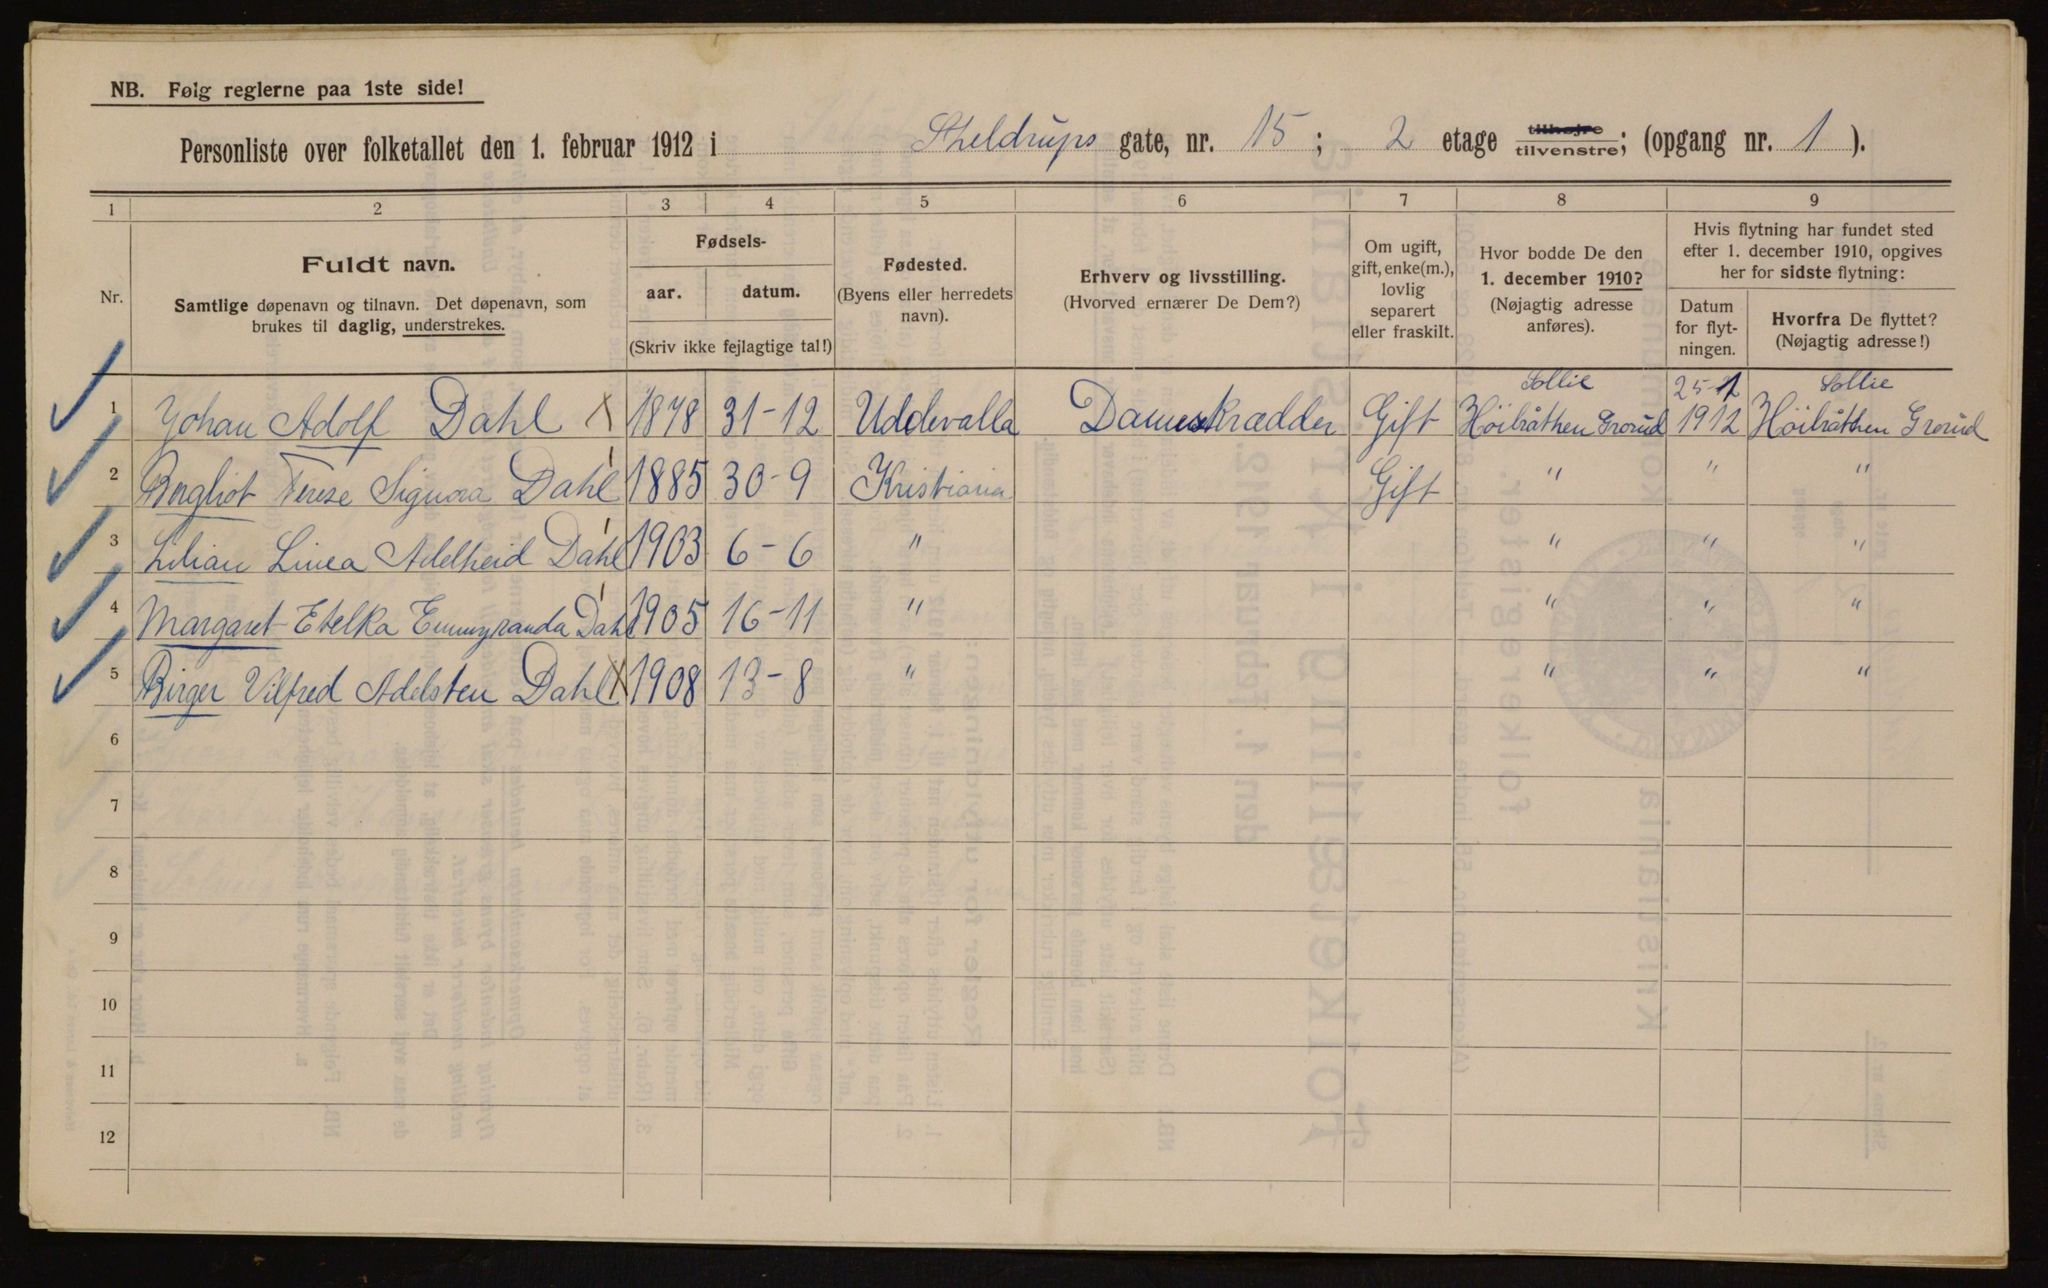 NB. Følg reglerne paa 1ste side!
Personliste over folketallet den 1. februar 1912 i Skeldrups gate, nr. 15; 2 etage tilhøjre tilvenstre; (opgang nr. 1).
1 2 3 4 5 6 7 8 9
Nr.
Fuldt navn.
Samtlige døpenavn og tilnavn. Det døpenavn, som
brukes til daglig, understrekes.
Fødsels-
aar. datum.
(Skriv ikke fejlagtige tal!)
Fødested.
(Byens eller herredets
navn).
Erhverv og livsstilling.
(Hvorved ernærer De Dem?)
Om ugift,
gift, enke(m.),
lovlig
separert
eller fraskilt.
Hvor bodde De den
1. december 1910?
(Nøjagtig adresse
anføres).
Hvis flytning har fundet sted
efter 1. december 1910, opgives
her for sidste flytning:
Datum
for flyt-
ningen.
Hvorfra De flyttet?
(Nøjagtig adresse!)
Sollie 25-1 Sollie
1 Johan Adolf Dahl X 1878 31-12 Uddevalla Dameskrædder Gift Höibråthen Grorud 1912 Höibråthen Grorud
2 Borghot Terese Signora Dahl 1885 30-9 Kristiania Gift " " "
3 Lilian Linea Adelheid Dahl 1903 6-6 " " " "
4 Margaret Etelka Emmyranda Dahl 1905 16-11 " " " "
5 Birger Vilfred Adelsten Dahl X 1908 13-8 " " " "
6
7
8
9
10
11
12